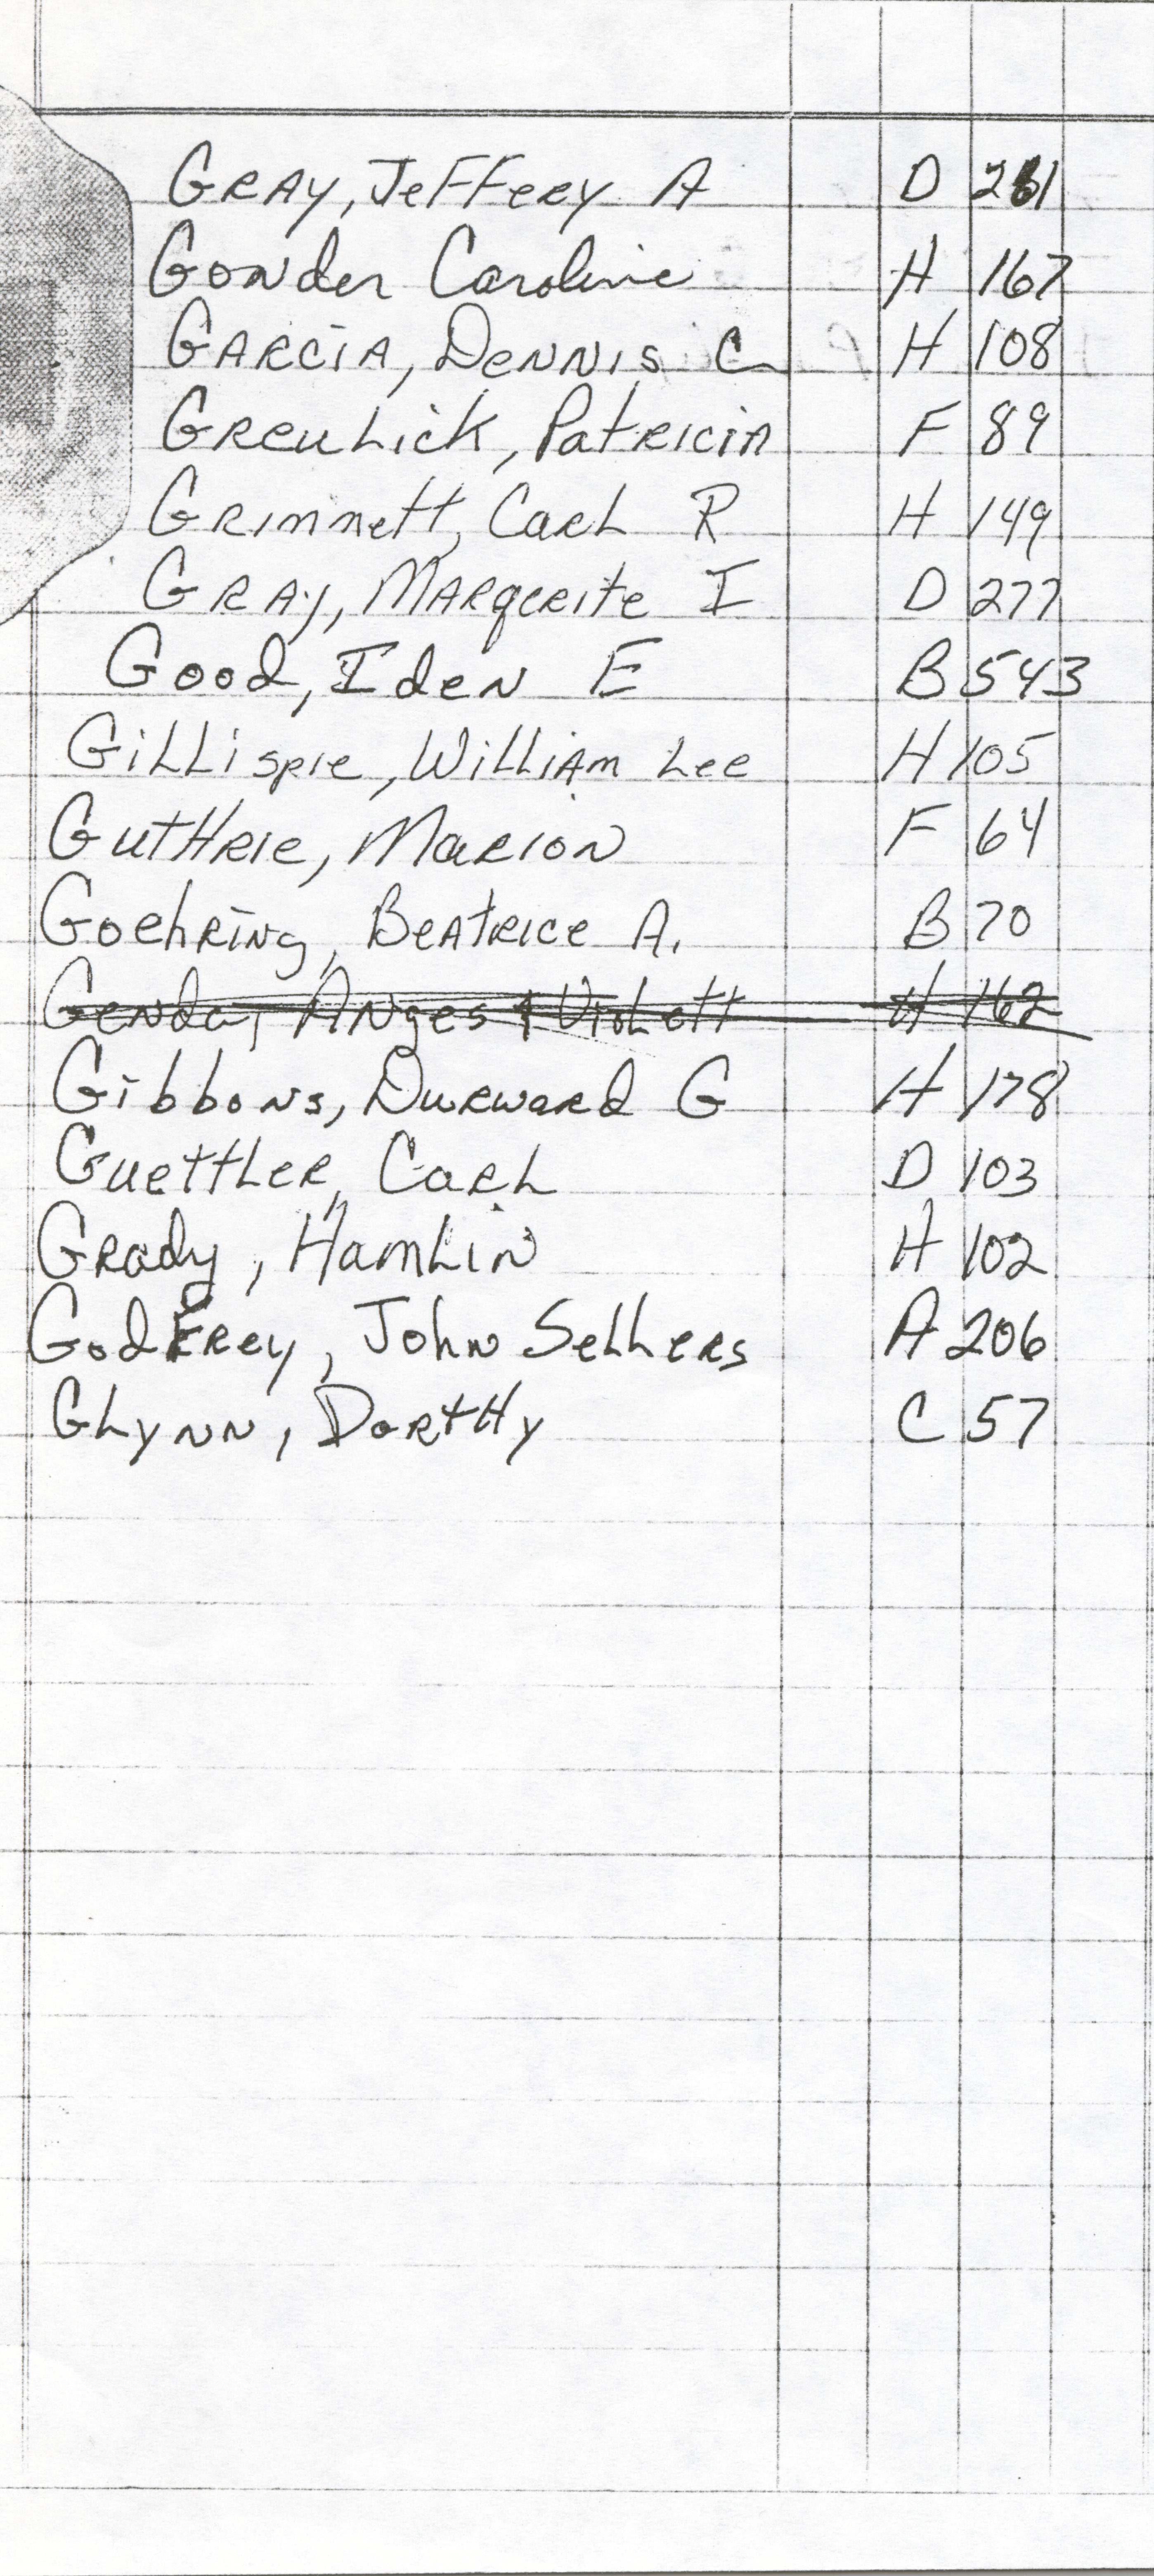 Gray, Jeffery A D 261
Gonder Caroline H 167
Garcia, Dennis C H 108
Greulick, Patricia F 89
Grimmett, Carl R H 149
Gray, Marguerite I D 277
Good, Iden E B 543
Gillispie, William Lee H 105
Guthrie, Marion F 64
Goehring, Beatrice A. B 70
Genda, Anges & Violett H 162
Gibbons, Durward G H 178
Guettler, Carl D 103
Grady, Hamlin H 102
Godfrey, John Sellers A 206
Glynn, Dorthy C 57